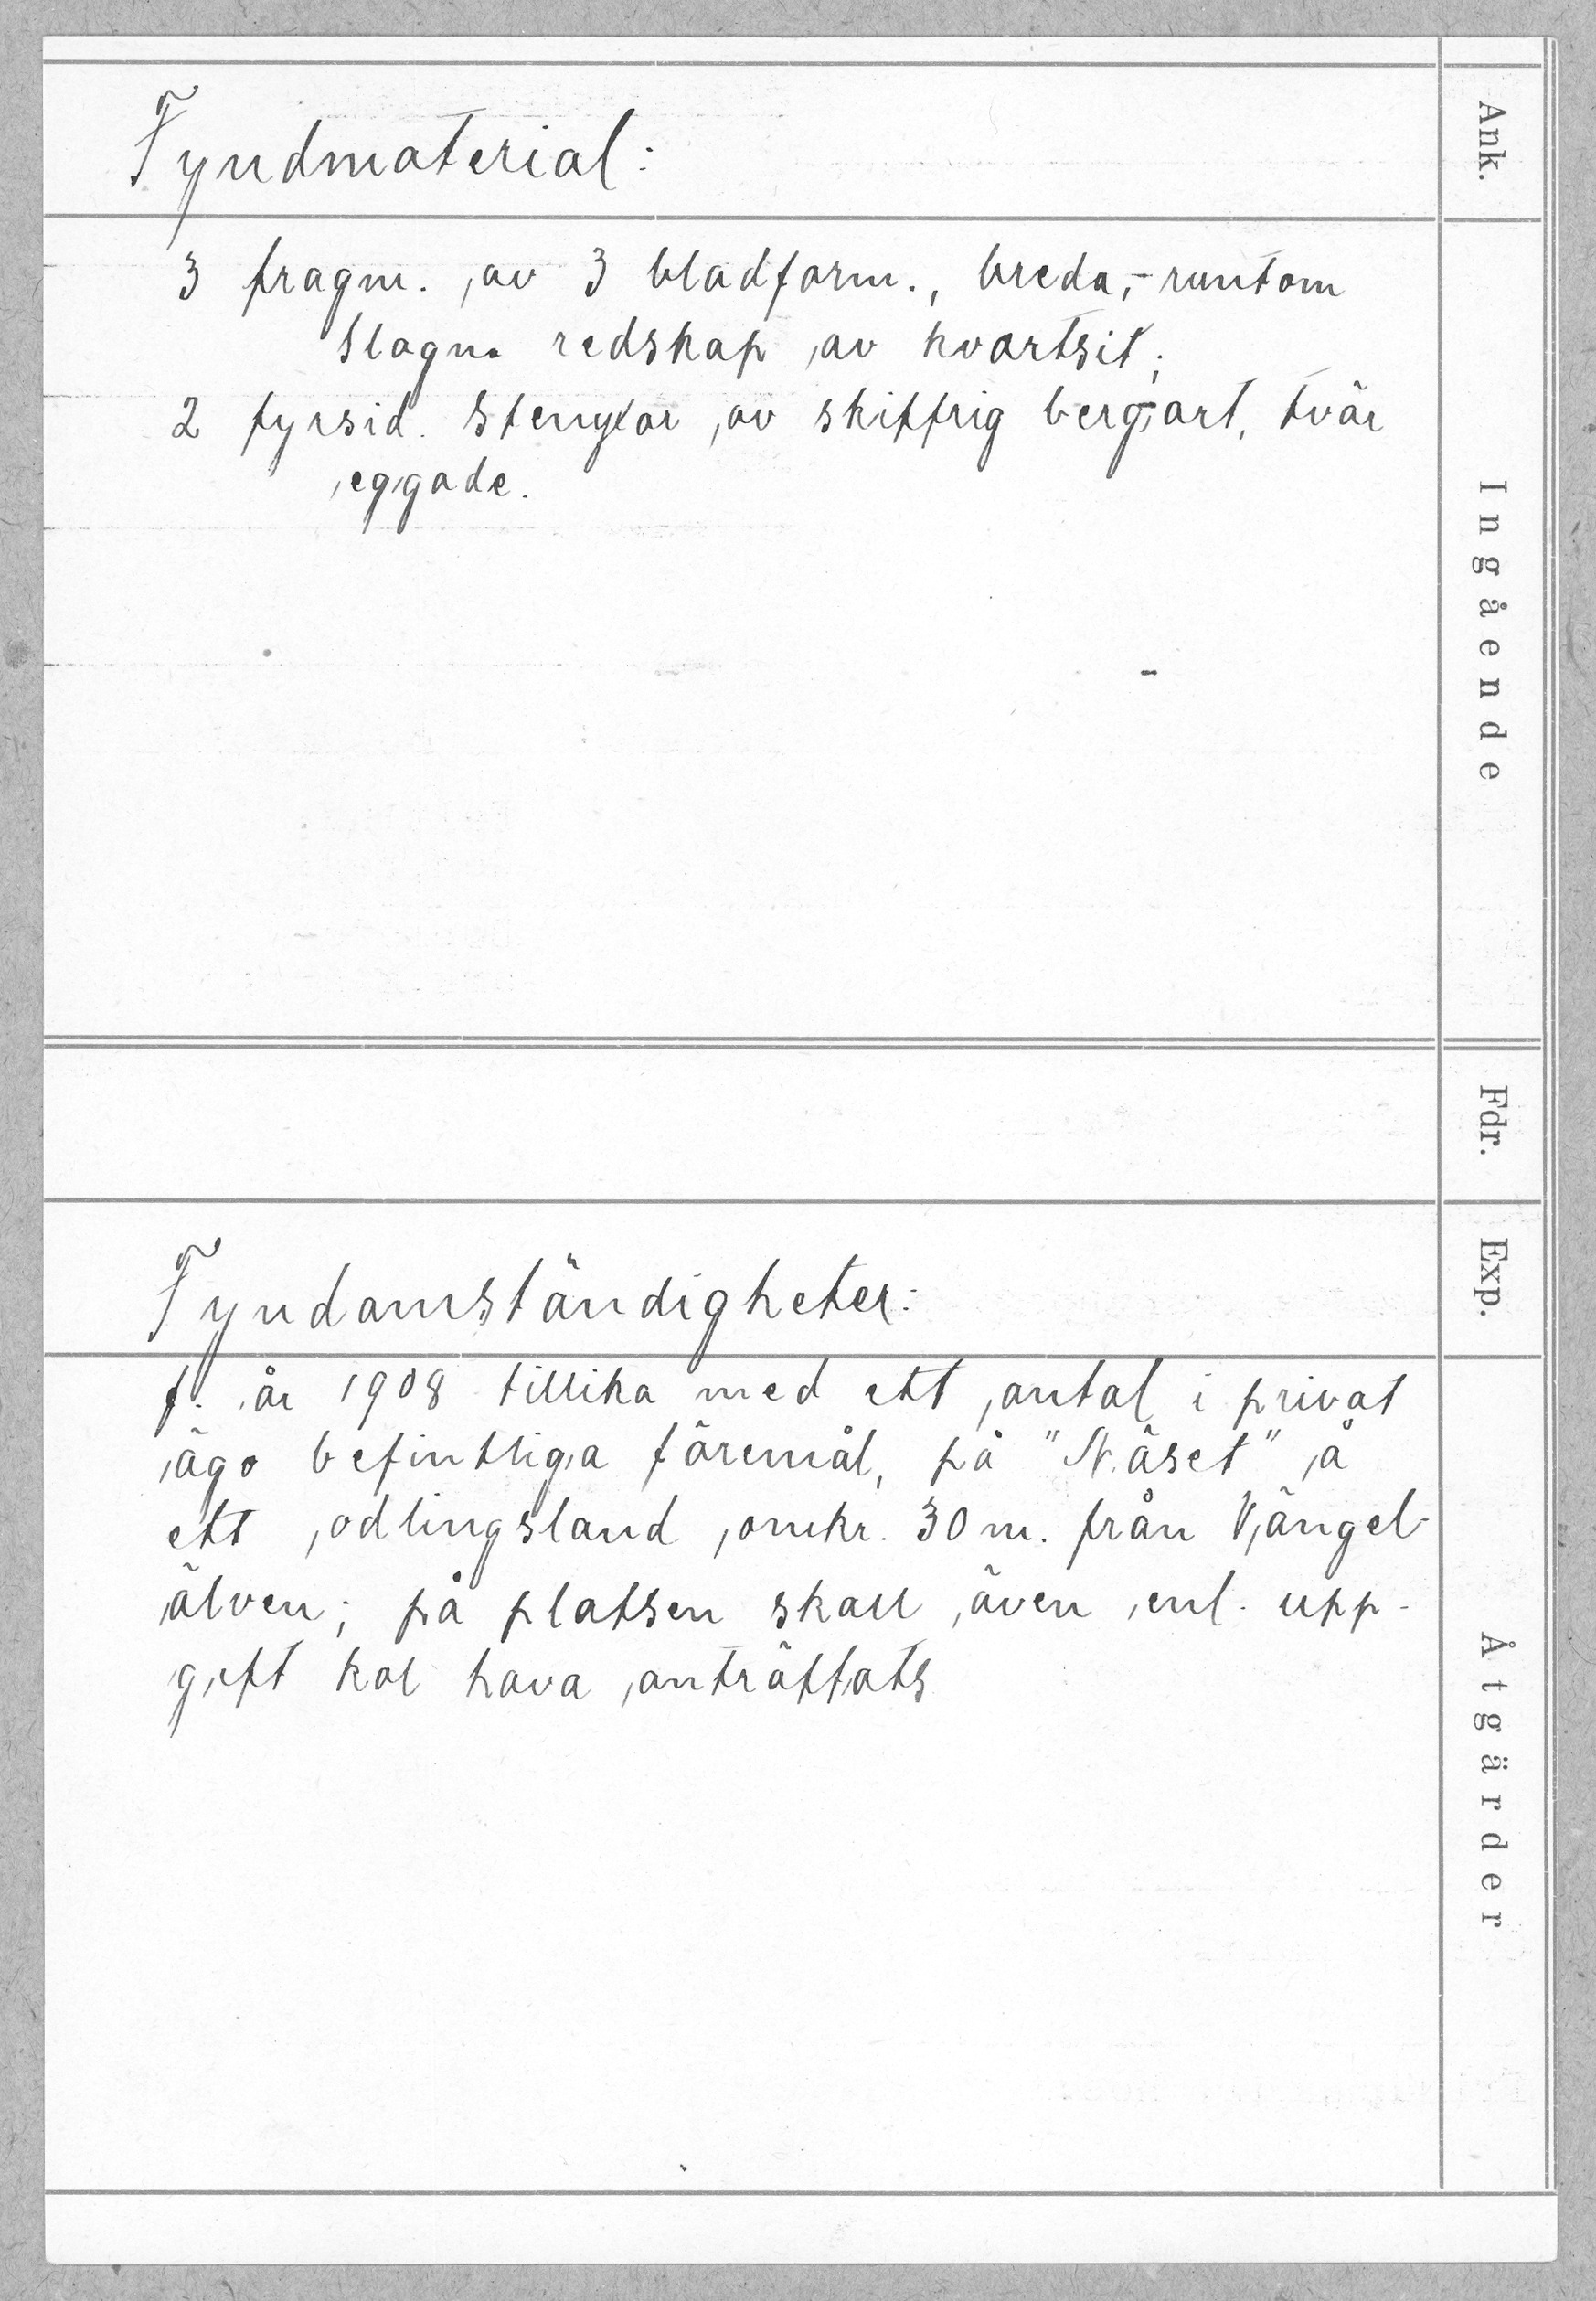 Fyndmaterial:
Ank.
3 fragm. av 3 bladform., breda, runtom
slagna redskap av kvartsit;
2 fyrsid. stenyxor av skiffrig bergart, tvär
eggade.
Ingående
Fdr.
Fyndomständigheter:
Exp.
f. år 1908 tillika med ett antal i privat
ägo befintliga föremål, på "Näset" å
ett odlingsland omkr. 30 m. från Vängel-
älven; på platsen skall även enl. upp-
gift kol hava anträffats
Åtgärder